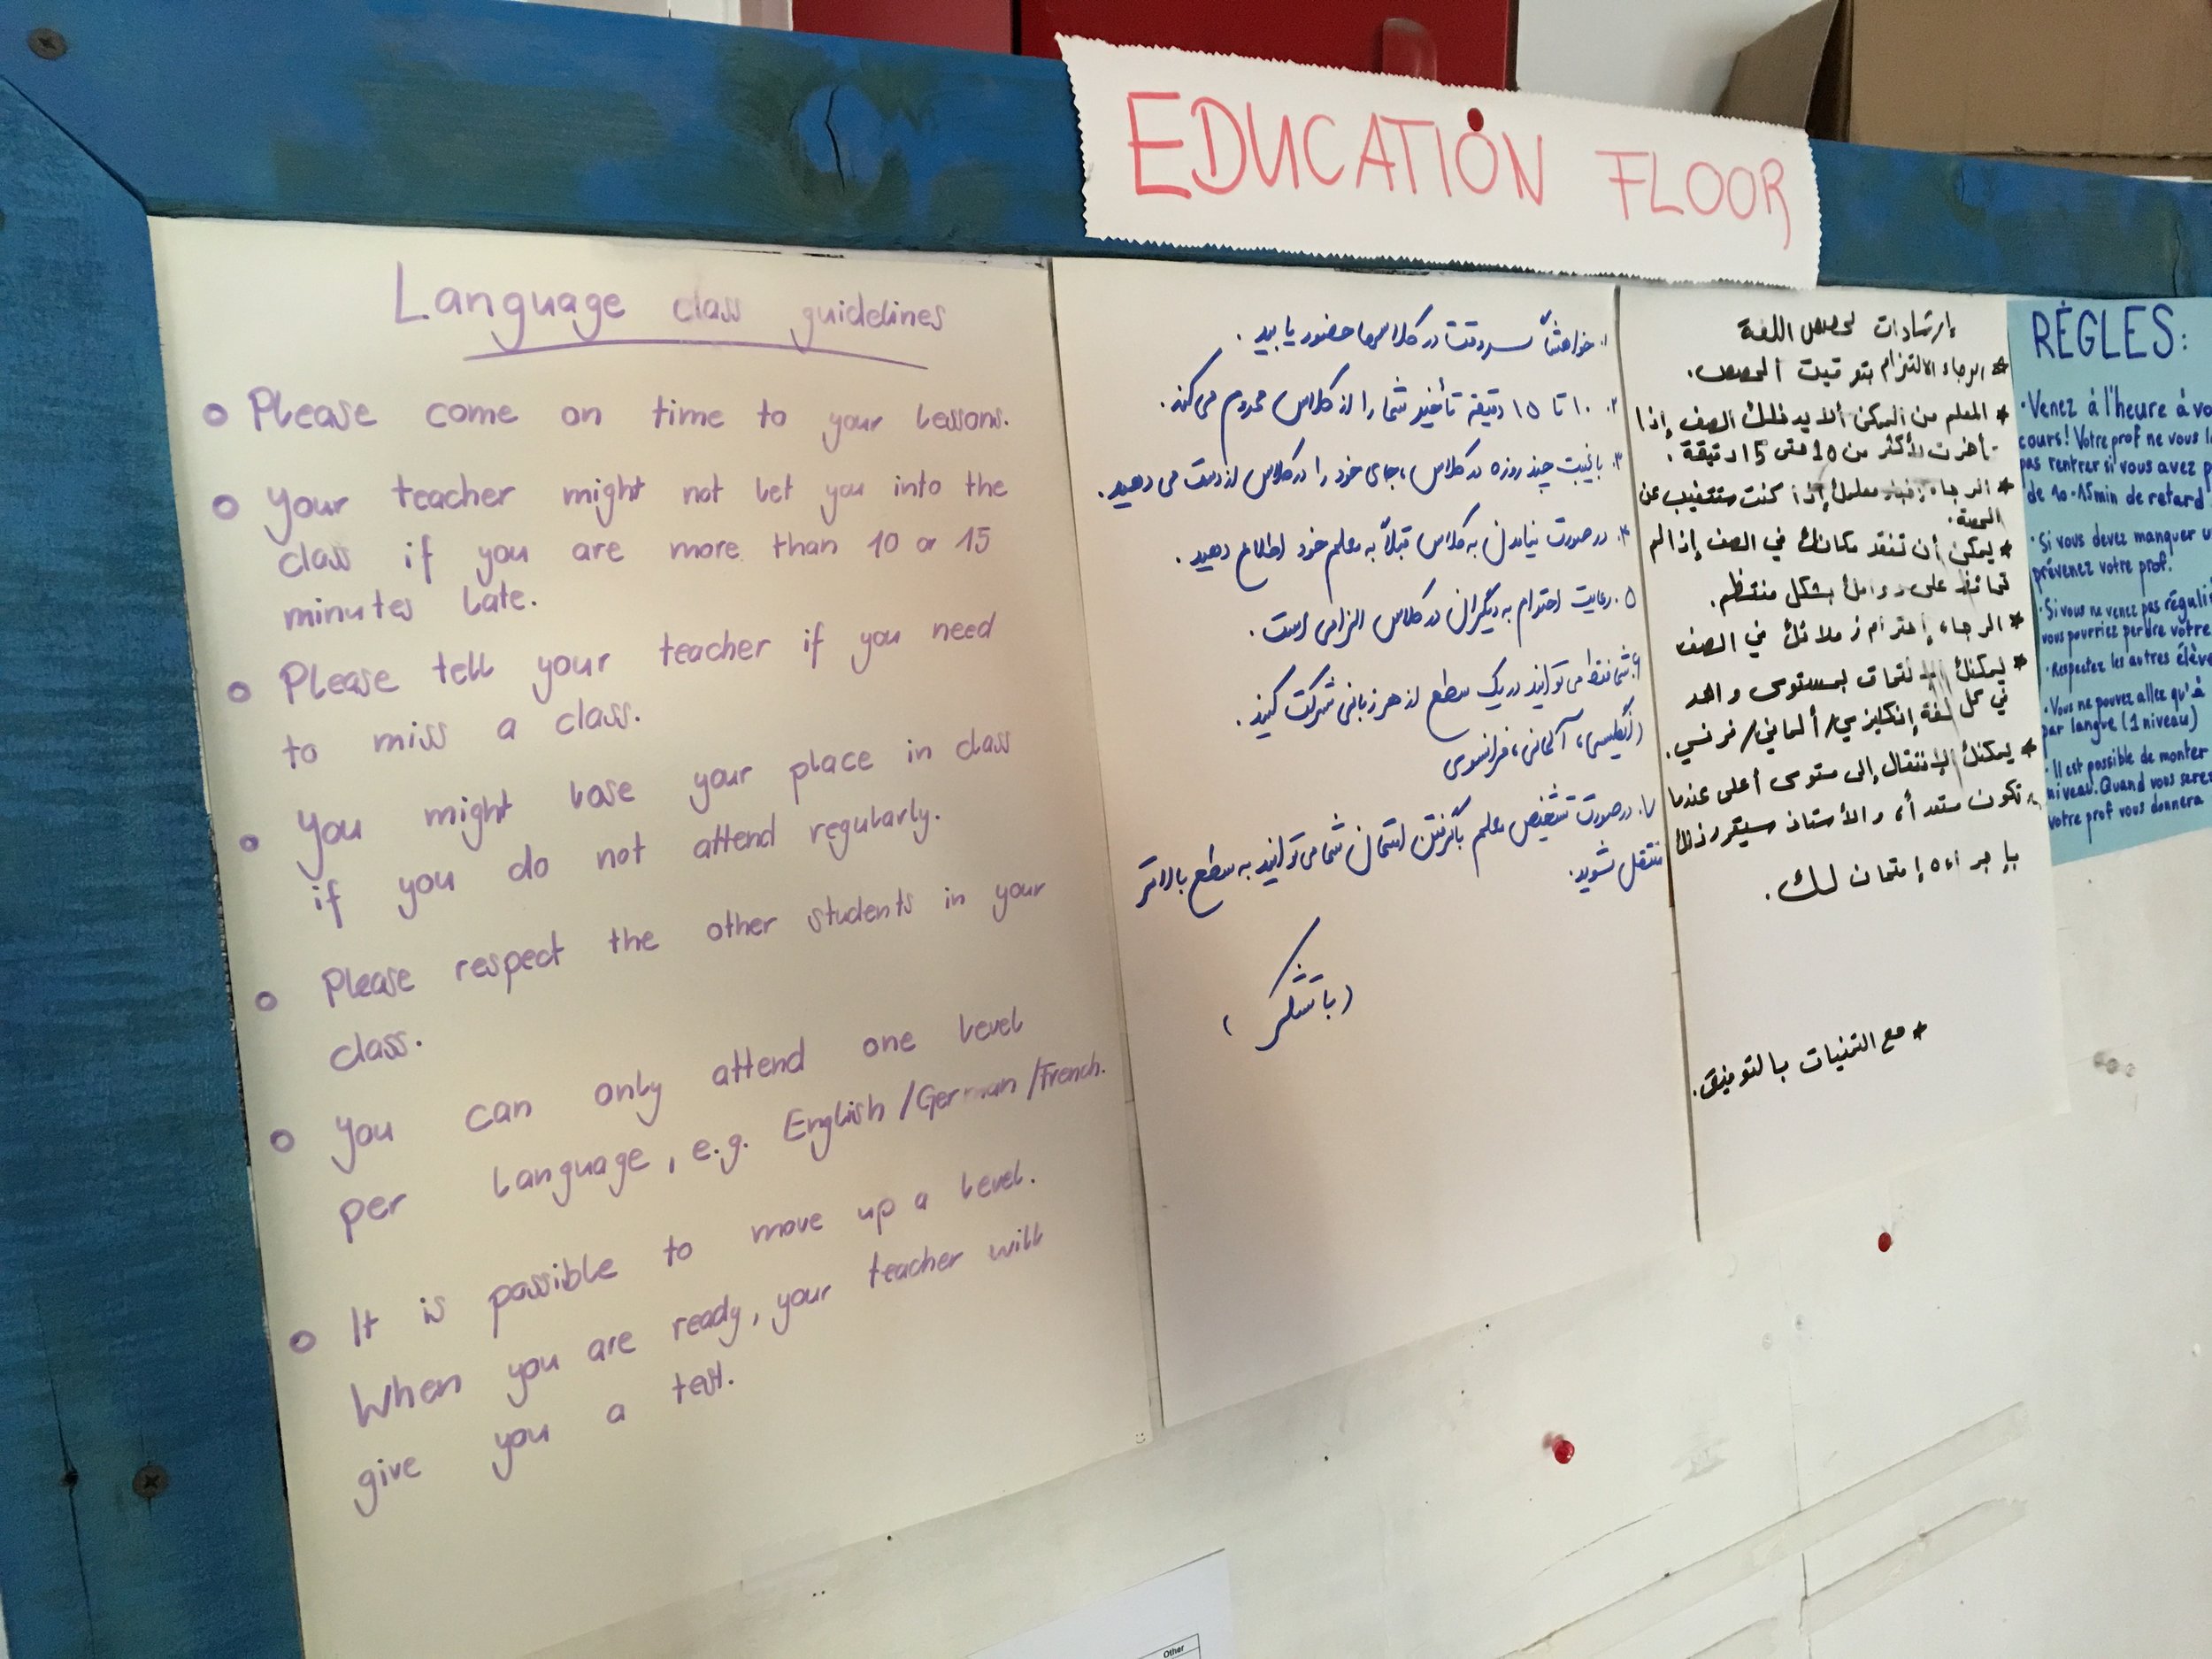 EDUCATION FLOOR
Language class guidelines
Please come on time to your lessons.
Your teacher might not let you into the
class if you are more than 10 or 15
minutes late.
Please tell your teacher if you need
to miss a class.
You might lose your place in class
if you do not attend regularly.
Please respect the other students in your
class.
You can only attend one level
per language, e.g. English/German/French.
It is possible to move up a level.
When you are ready, your teacher will
give you a test.
۱. خواهشاً سروقت در کلاس‌ها حضور یابید.
۲. ۱۰ تا ۱۵ دقیقه تأخیر شما را از کلاس محروم می‌کند.
۳. با غیبت چند روزه در کلاس، جای خود را در کلاس از دست می دهید.
۴. در صورت نیامدن به کلاس قبلاً به معلم خود اطلاع دهید.
۵. رعایت احترام به دیگران در کلاس الزامی است.
۶. شما فقط می توانید در یک سطح از هر زبانی شرکت کنید.
(انگلیسی، آلمانی، فرانسوی
۷. در صورت تشخیص معلم با گرفتن امتحان شما می توانید به سطح بالاتر
منتقل شوید.
(با تشکر)
إرشادات لحصص اللغة
* الرجاء الالتزام بتوقيت الحصص.
* المعلم من الممكن ألا يدخلك الصف إذا
تأخرت لأكثر من 10 حتى 15 دقيقة.
* الرجاء إخبار معلمك إذا كنت ستتغيب عن
الحصة.
* يمكن أن تفقد مكانك في الصف إذا لم
تحافظ على دوامك بشكل منتظم.
* الرجاء إحترام زملائك في الصف
* يمكنك الإلتحاق بمستوى واحد
في كل لغة إنكليزي/ألماني/فرنسي.
* يمكنك الإنتقال إلى مستوى أعلى عندما
تكون مستعداً، والأستاذ سيقرر ذلك
بإجراءه إمتحان لك.
* مع التمنيات بالتوفيق.
RÈGLES:
· Venez à l'heure à
cours! Votre prof ne vous
pas rentrer si vous avez
de 10-15min de retard
· Si vous devez manquer
prévenez votre prof.
· Si vous ne venez pas
vous pourriez perdre votre
· Respectez les autres
· Vous ne pouvez aller qu'à
par langue (1 niveau)
· Il est possible de monter
niveau. Quand vous
votre prof vous donnera
Other